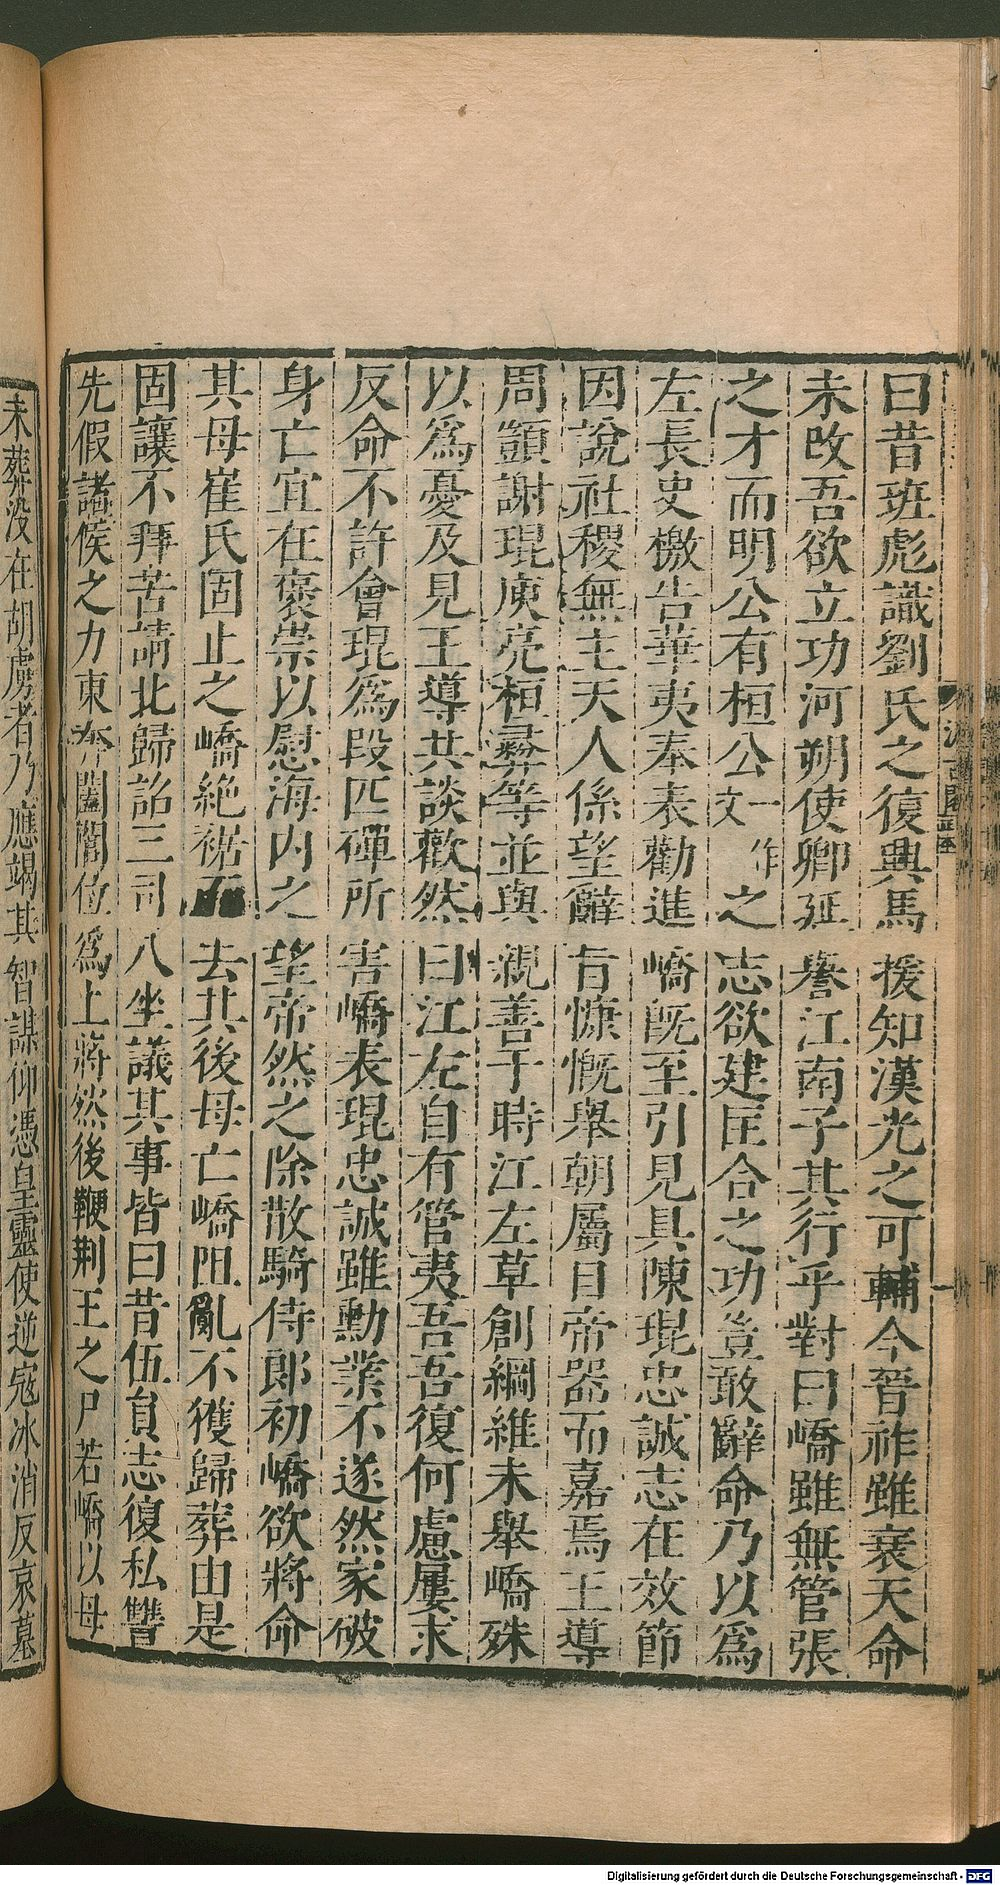 曰昔班彪識劉氏之復興馬援知漢光之可輔今晉祚雖衰天命
未改吾欲立功河朔使卿延譽江南子其行乎對曰嶠雖無管張
之才而明公有桓公一作文之志欲建匡合之功豈敢辭命乃以爲
左長史檄告華夷奉表勸進嶠旣至引見具陳琨忠誠志在效節
因說社稷無主天人係望辭旨慷慨舉朝屬目帝器而嘉焉王導
周顗謝琨庾亮桓彞等並與親善于時江左草創綱維未舉嶠殊
以爲憂及見王導共談歡然曰江左自有管夷吾吾復何慮屢求
反命不許會琨爲段匹磾所害嶠表琨忠誠雖勳業不遂然家破
身亡宜在襃崇以慰海內之望帝然之除散騎侍郎初嶠欲將命
其母崔氏固止之嶠絶裾而去其後母亡嶠阻亂不獲歸葬由是
固讓不拜苦請北歸詔三司八坐議其事皆曰昔伍員志復私讐
先假諸侯之力東奔闔閭位爲上將然後鞭荆王之尸若嶠以母
未葬没在胡虜者乃應竭其智謀仰憑皇靈使逆寇冰消反哀墓
汲古閣
Digitalisierung gefördert durch die Deutsche Forschungsgemeinschaft - DFG